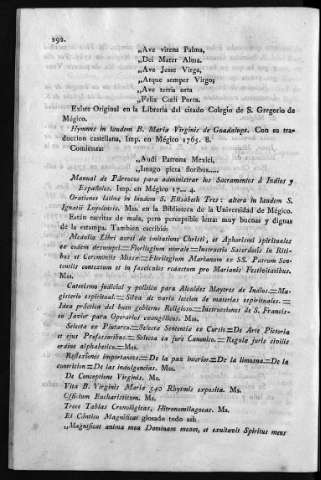 292.
„Ave virens Palma,
„Dei Mater Alma.
„Ave Jesse Virga,
„Atque semper Virgo;
„Ave terris orta
„Felix Cœli Porta.
Existe Original en la Libreria del citado Colegio de S. Gregorio de
Mégico.
Hymnus in laudem B. Mariæ Virginis de Guadalupe. Con su tra-
duccion castellana, Imp. en Mégico 1765. 8.
Comienza:
„Audi Patrona Mexici,
„Imago picta floribus....
Manual de Párrocos para administrar los Sacramentos á Indios y
Españoles. Imp. en Mégico 17... 4.
Orationes latinæ in laudem S. Elisabeth Tres: altera in laudem S.
Ignatii Loyolensis. Mss. en la Biblioteca de la Universidad de Mégico.
Están escritas de mala, pero perceptible letra: muy buenas y dignas
de la estampa. Tambien escribió:
Medulla Libri aurei de imitatione Christi, et Aphorismi spirituales
ex eodem desumpti.=Florilegium morale=Instructio Sacerdotis in Riti-
bus et Ceremoniis Missæ=Florilegium Marianum ex SS. Patrum Sen-
tentiis contextum et in fasciculos redactum pro Marianis Festivitatibus.
Mss.
Catecismo judicial y político para Alcaldes Mayores de Indios.=Ma-
gisterio espiritual.=Silva de varia leccion de materias espirituales.=
Idea práctica del buen gobierno Religioso.=Instrucciones de S. Francis-
co Javier para Operarios evangélicos. Mss.
Selecta ex Plutarco.=Selectæ Sententiæ ex Curtio=De Arte Pictoria
et ejus Professoribus.=Selecta ex jure Canonico.=Regulæ juris civilis
ordine alphabetico.=Mss.
Reflexiones importantes.=De la paz interior.=De la limosna.=De la
contricion=De las indulgencias. Mss.
De Conceptione Virginis. Ms.
Vita B. Virginis Mariæ 540 Rhytmis exposita. Ms.
Officium Eucharisticum. Ms.
Trece Tablas Cronológicas,
Ms.
El Cántico Magnificat glosado todo asi:
„Magnificat anima mea Dominum meum, et exultavit Spiritus meus